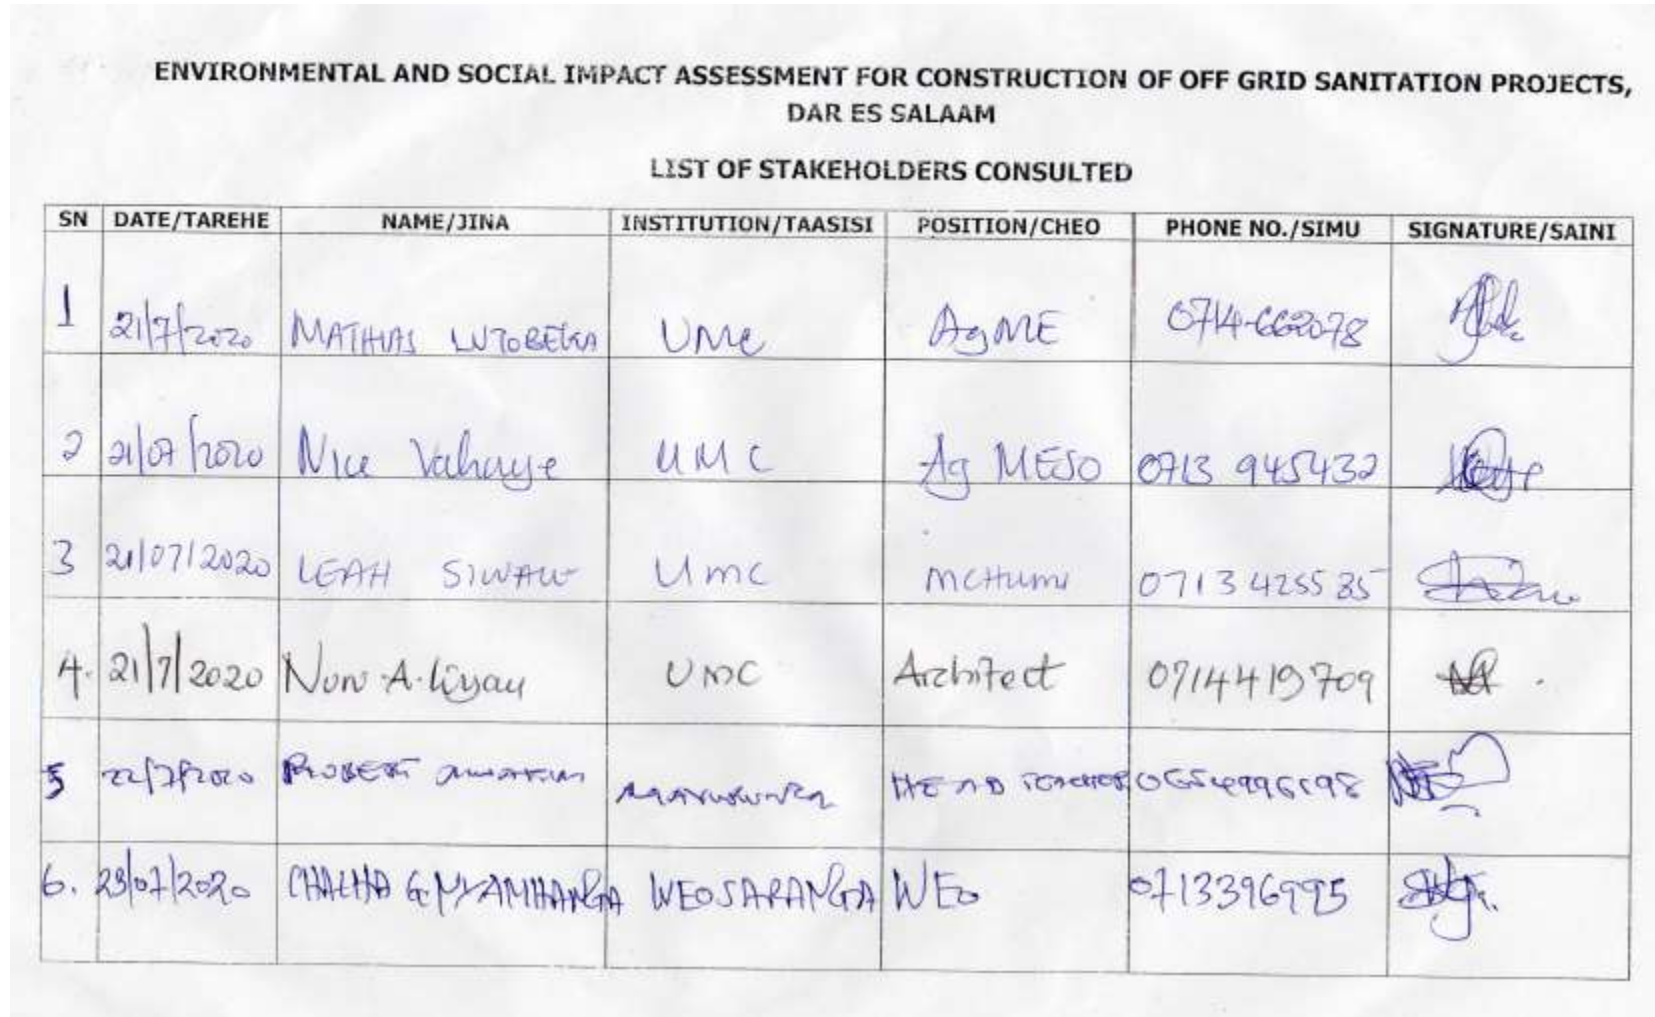 ENVIRONMENTAL AND SOCIAL IMPACT ASSESSMENT FOR CONSTRUCTION OF OFF GRID SANITATION PROJECTS,
DAR ES SALAAM
LIST OF STAKEHOLDERS CONSULTED
SN DATE/TAREHE NAME/JINA INSTITUTION/TAASISI POSITION/CHEO PHONE NO./SIMU SIGNATURE/SAINI
1 21/7/2020 MATHIAS UMC AgME 0714-662078
2 21/07/2020 Nice UMC Ag MESO 0713 945432
3 21/07/2020 LEAH UMC MCHUMI 0713 425535
4. 21/7/2020 UMC Architect 0714419709
5 22/7/2020 ROBERT HEAD TEACHER
6. 23/07/2020 CHACHA G. NYAMHANGA WEO SARANGA WEO 0713396995